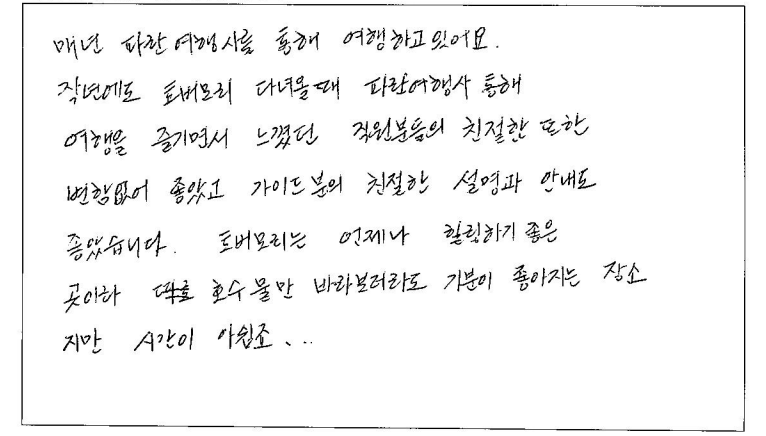 매년 파란여행사를 통해 여행하고있어요.
작년에도 토버모리 다녀올때 파란여행사 통해
여행을 즐기면서 느꼈던 직원분들의 친절한 또한
변함없어 좋았고 가이드분의 친절한 설명과 안내도
좋았습니다. 토버모리는 언제나 힐링하기 좋은
곳이라 호수물만 바라보더라도 기분이 좋아지는 장소
지만 시간이 아쉽죠...